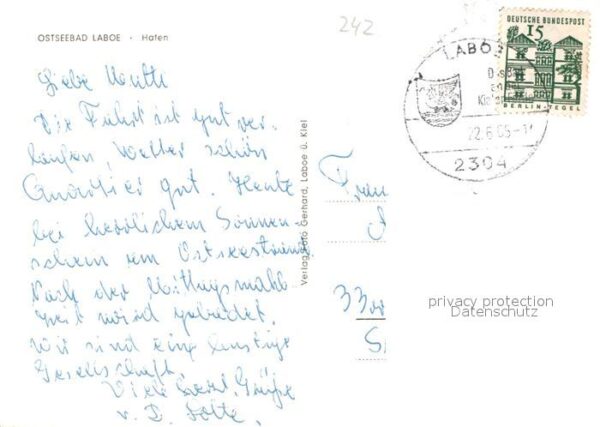 OSTSEEBAD LABOE · Hafen
242
DEUTSCHE BUNDESPOST
15
BERLIN-TEGEL
LABOE
22.6.65-1
2304
Liebe
Die Fahrt ist gut ver-
laufen, Wetter schön
Quartier gut. Heute
bei herrlichem Sonnen-
schein am Ostseestrand
Nach der Mittagsmahl-
zeit wird gebadet.
Wir sind eine lustige
Gesellschaft.
Viele herzl. Grüße
v.
Verlag Foto Gerhard, Laboe ü. Kiel
Frau
33
privacy protection
Datenschutz